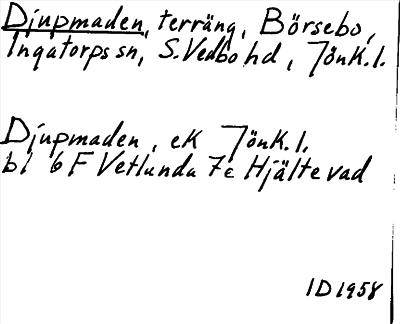 Djupmaden, terräng, Börsebo,
Ingatorps sn, S. Vedbo hd, Jönk. l.
Djupmaden, ek Jönk. l.
bl 6 F Vetlunda 7e Hjältevad
ID 1958